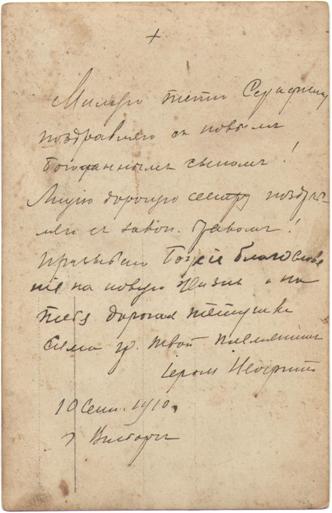 +
Милую тетю Серафиму
поздравляю съ новымъ
богоданнымъ сыномъ!
дорогую сестру поздрав
ляю съ закон. бракомъ!
Призываю Божіе благослове
ніе на новую жизнь и на
тебя дорогая тетушка
гр. твой племянникъ
Іером.
10 сент. 1910 г.
г. Выборгъ